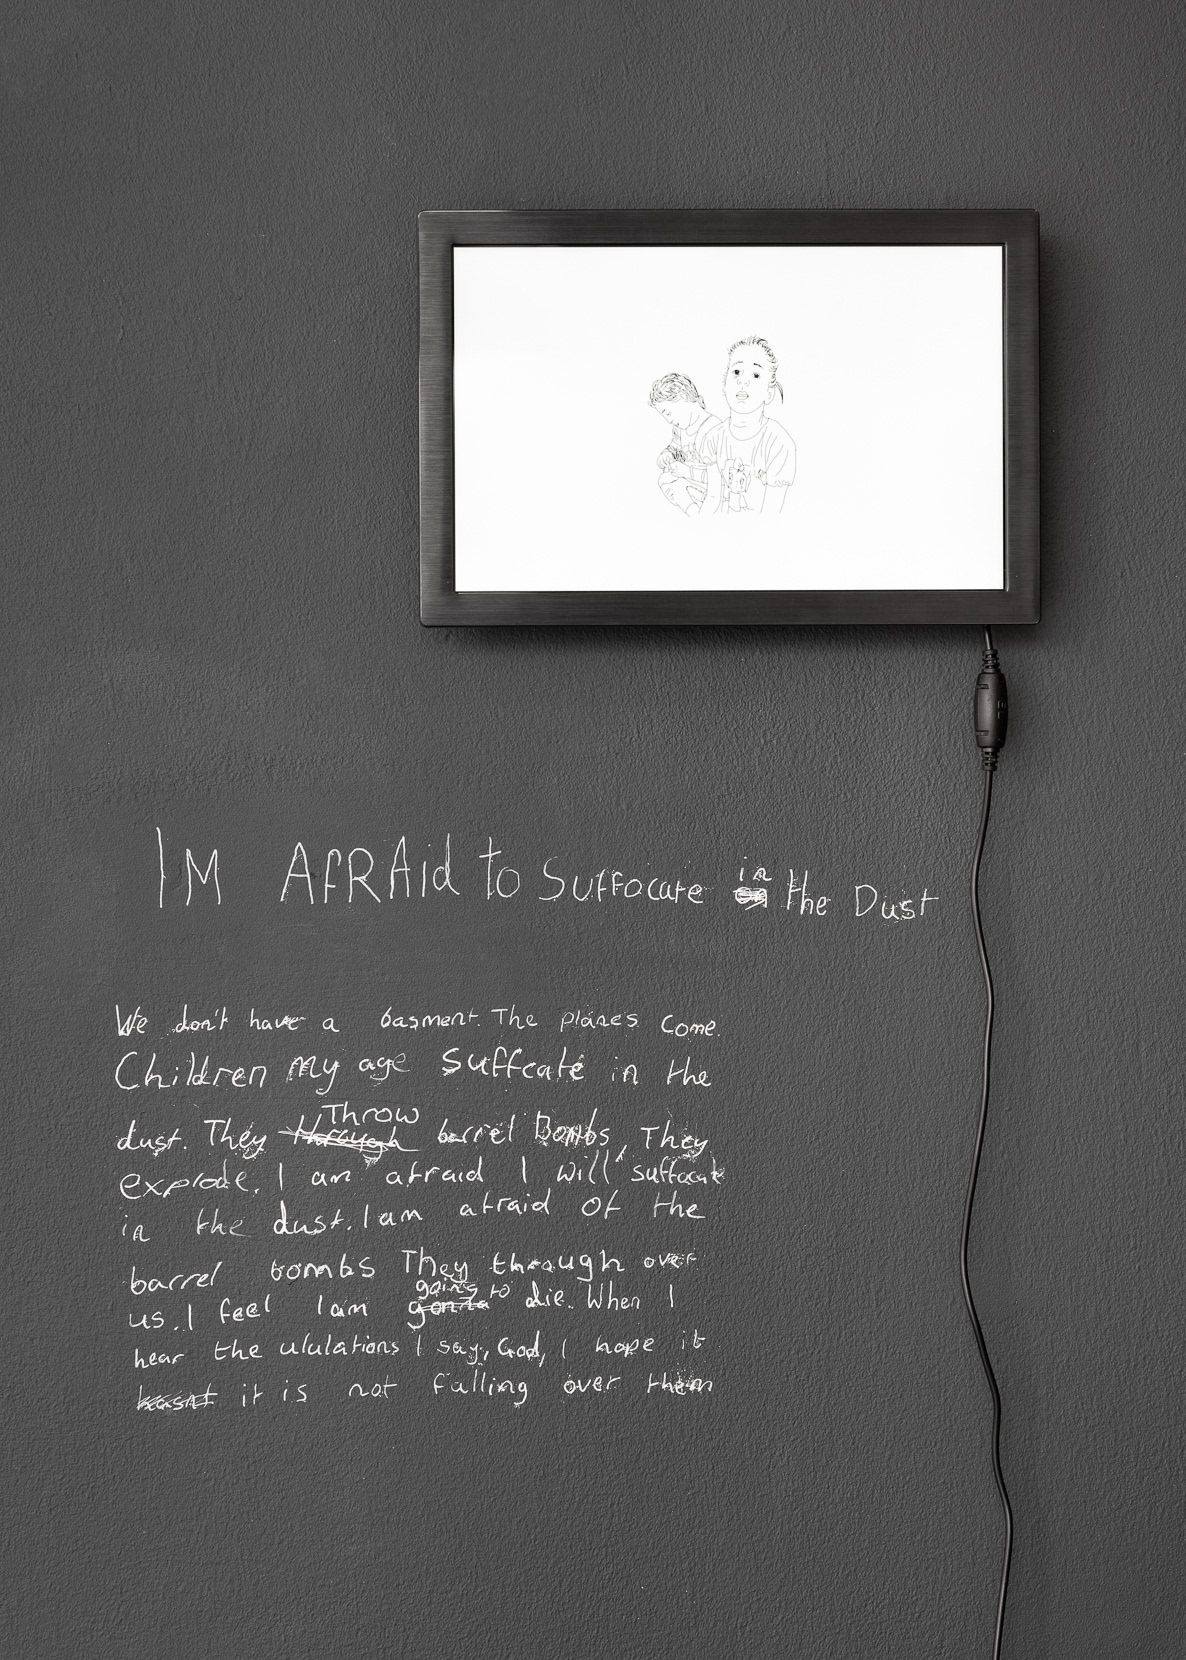 I'M AfRAid to Suffocate in the Dust
We don't have a basment. The planes come.
Children my age suffcate in the
dust. They Throw barrel Bombs, They
explode. I am afraid I will suffocate
in the dust. I am afraid of the
barrel bombs They through over
us. I feel I am going to die. When I
hear the ululations I say, God, I hope it
it is not falling over them